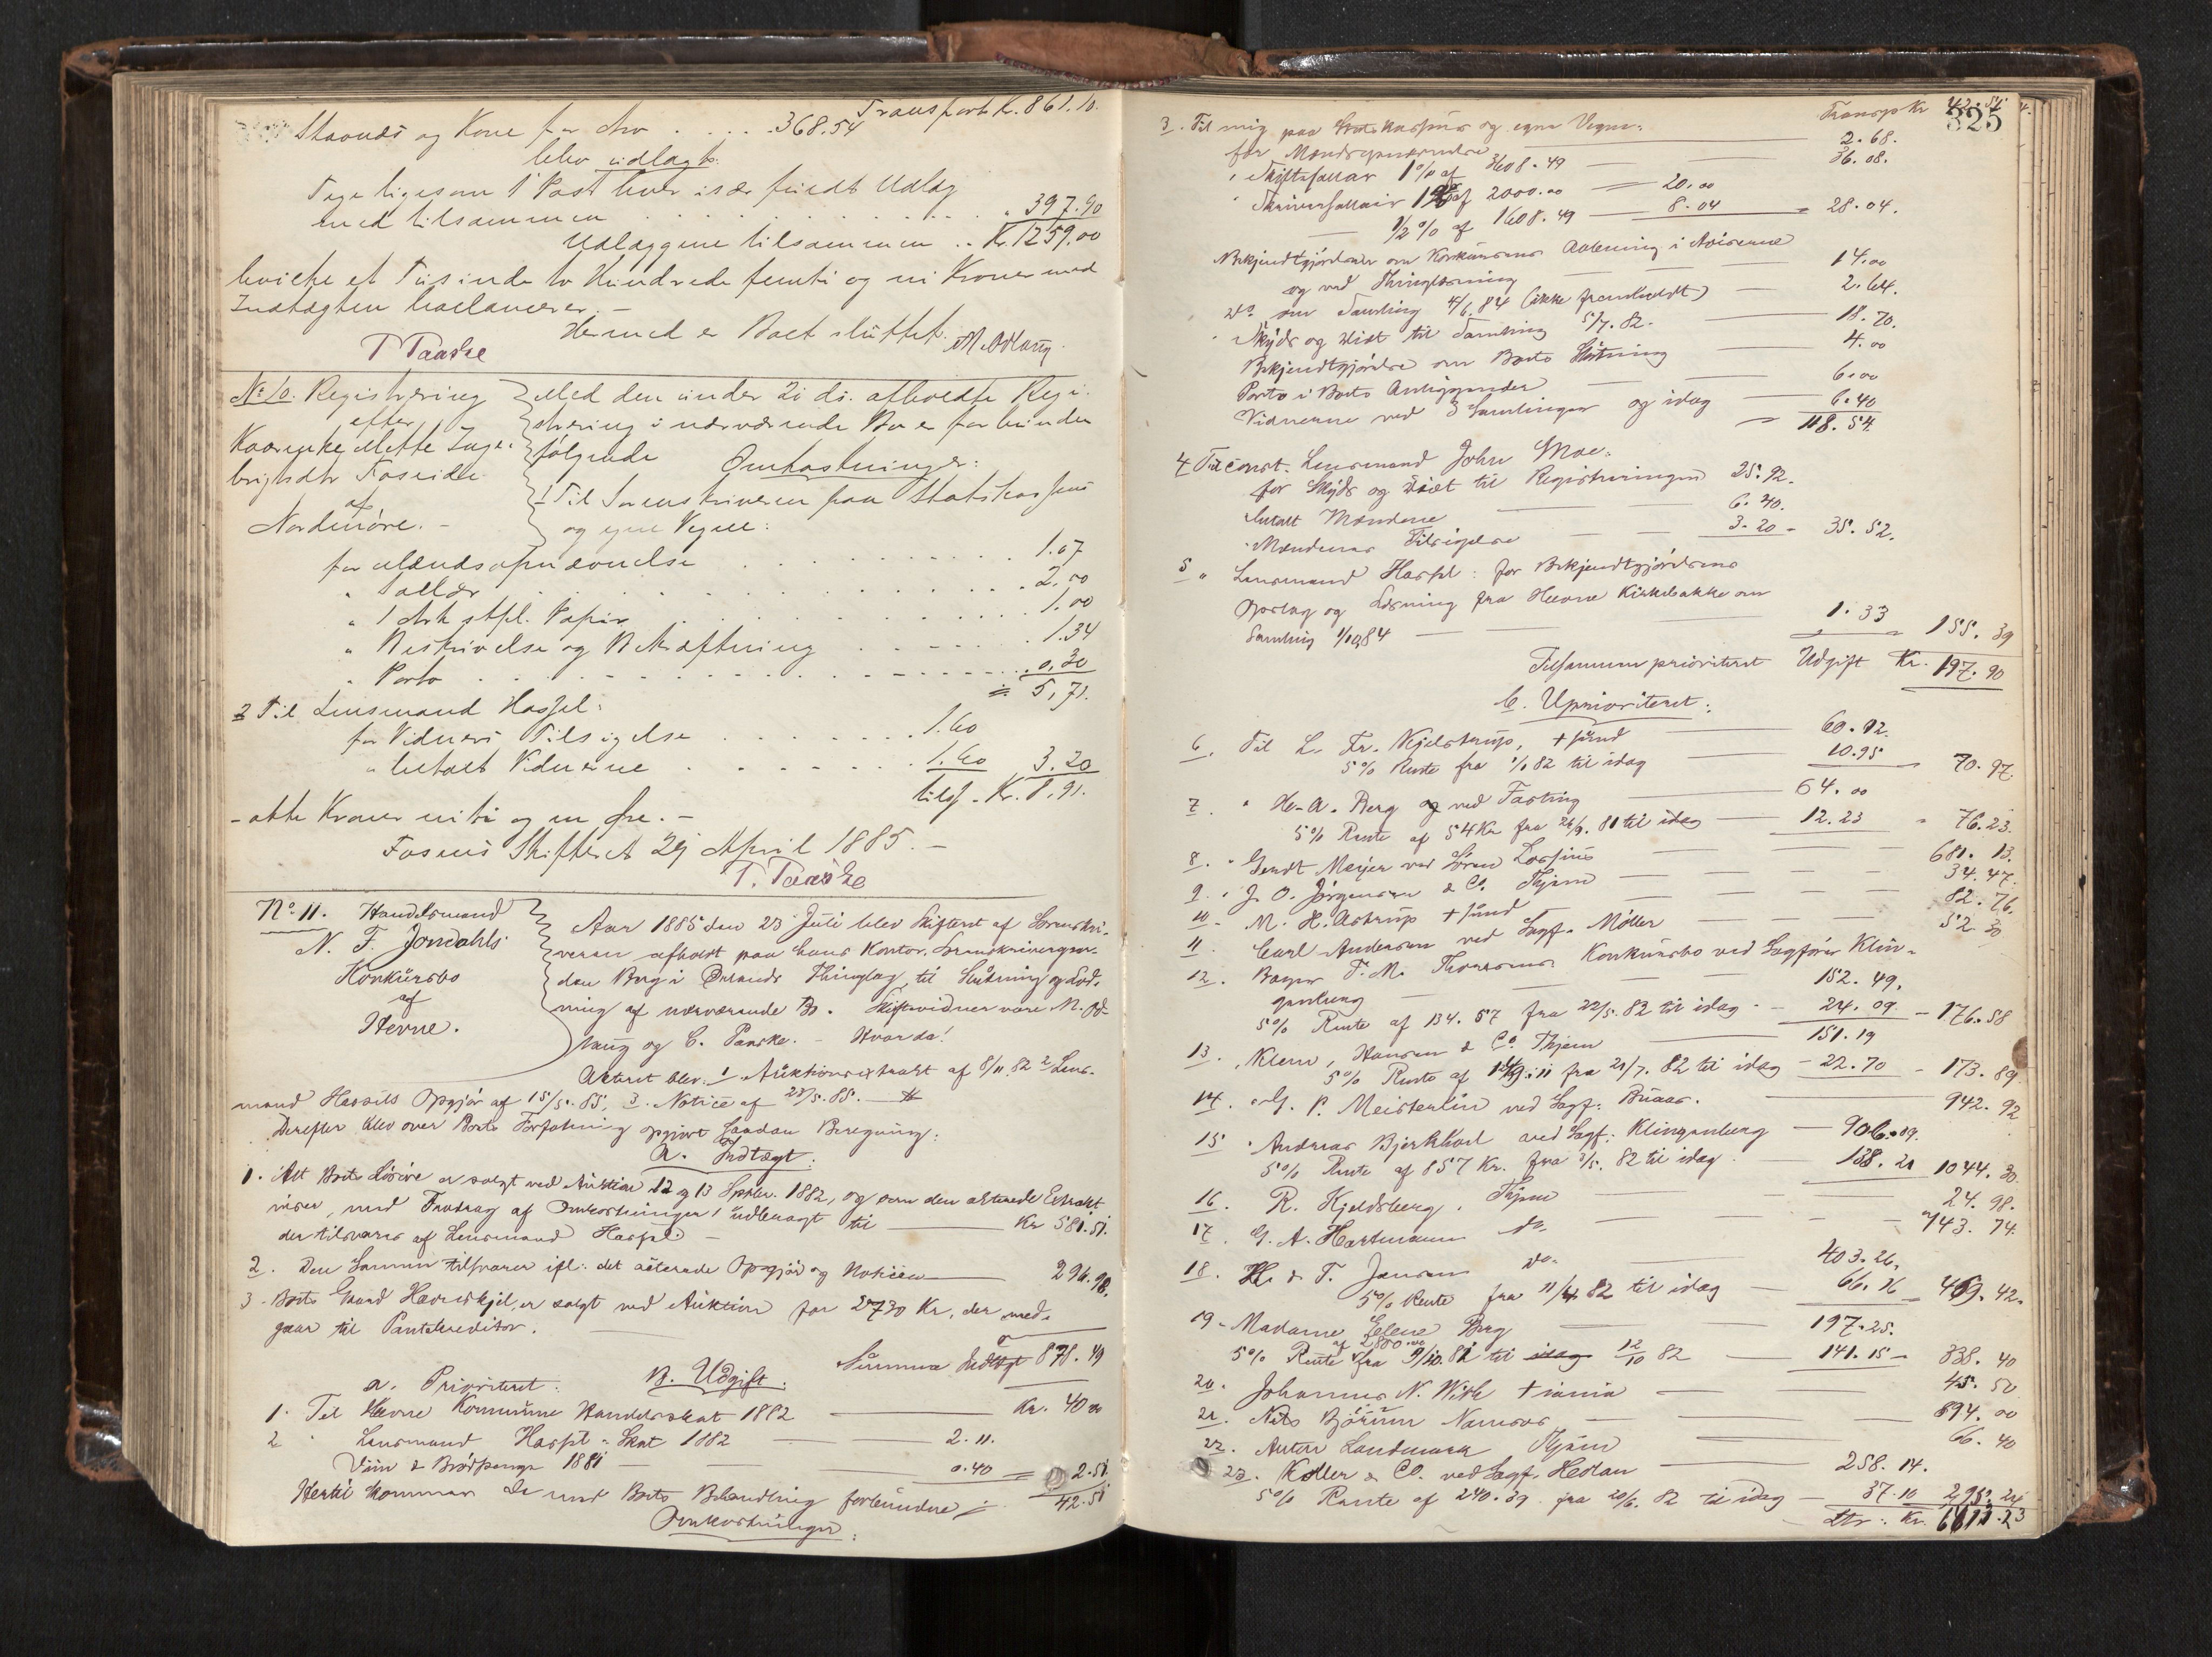 Transport Kr. 861.10.
Skaanäs og Kone for Arv . . . . 368.54
blev udlagt.
Tage ligesom 1 Post hver især fuldt Udlag
med tilsammen . . . . " 397.90
Udlæggene tilsammen .. Kr. 1259.00
hvilke et Tusinde to Hundrede femti og ni Kroner med
Indtægten balancerer. –
Hermed er Boet sluttet.
T Paaske
No 10. Registrering
efter
Kaarenke Mette Inge-
brigtsdtr Foseide
af
Nordmøre. –
Med den under 20 ds. afholdte Regi-
strering i nærværende Bo er forbunden
følgende Omkostninger:
1 Til Sorenskriveren paa Statskassens
og egne Vegne:
for Mændsopnævnelse . . . . 1.07
" Sallær . . . . 2.00
" 1 Ark stpl. Papir . . . . 1.00
" Beskrivelse og Bekræftning . . . . 1.34
" Porto . . . . 0.30
= 5,71.
2 Til Lensmand Hassel:
for Vidners Tilsigelse . . . . 1.60
" betalt Vidnerne . . . . 1.60 3.20
tils. Kr. 8.91.
– otte Kroner niti og en Øre. –
Fosens Skifteret 29 April 1885. –
T. Paaske
No 11. Handelsmand
N. F. Jondahls
Konkursbo
af
Hevne.
Aar 1885 den 23 Juli blev Skifteret af Sorenskri-
veren afholdt paa hans Kontor, Sorenskrivergaar-
den Berg i Ørlands Thinglag, til Slutning og Lod-
ning af nærværende Bo. Skiftevidner vare M. Od-
laug og C. Paaske. – Hvorda!
Akteret blev: 1 Auktionsextrakt af 8/11 82 2 Lens-
mand Hassels Opgjør af 15/5. 85, 3. Notice af 28/5. 85. –
Derefter blev over Boets Forfatning opgjort saadan Beregning:
A. Indtægt:
1. Alt Boets Løsøre er solgt ved Auktion 12 og 13 Septbr. 1882, og som den akterede Extrakt
viser, med Fradrag af Omkostninger udbragt til Kr 581.51.
der tilsvares af Lensmand Hassel –
2. Den Samme tilsvarer ifl: det akterede Opgjør og Noticen 296.98.
3. Boets Gaard Hævnskjel, er solgt ved Auktion for 2730 Kr, der med-
gaar til Pantekreditor.
Summa Indtægt 878.49
B. Udgift:
a. Prioriteret:
1. Til Hevne Kommune Handelsskat 1882 Kr. 40 00
2 " Lensmand Hassel " Skat 1882 2.11.
Viin & Brødpenge 1881 0.40 = 2.51
42.51
Hertil kommer de med Boets Behandling forbundne
Omkostninger:
325
Transp Kr 42.51.
3. Til mig paa Statskassens og egne Vegne:
for Mændsopnævnelse 2.68.
" Skiftesallær 1% af 3608.49 36.08.
" Skriversallair 1% af 2000.00 20.00
1/2 % af 1608.49 8.04 = 28.04.
Bekjendtgjørelser om Konkursens Aabning i Aviserne
og ved Thinglæsning 14.00
do om Samling 4/6. 84 (ikke fremholdt) 2.64.
" Skyds og Diæt til Samling 5/7. 82. 18.70.
Bekjendtgjørelse om Boets Slutning 4.00
Porto i Boets Anliggender 6.00
Vidnerne ved 3 Samlinger og idag 6.40
118.54
4 Til const. Lensmand John Moe:
for Skyds og Diæt til Registreringen 25.92.
betalt Mændene 6.40.
" Mændenes Tilsigelse 3.20 = 35.52.
5 " Lensmand Hassel: for Bekjendtgjørelsens
Opslag og Læsning fra Hevne Kirkebakke om
Samling 1/10 84 1.33 155.39
Tilsammen prioriteret Udgift Kr. 197.90
b. Uprioriteret:
6. Til L. Fr. Kjelstrup, +sund 60.02.
5% Rente fra 1/1 82 til idag 10.95 70.97.
7. " H. A. Berg og ved Fasting 64.00
5% Rente af 54 Kr fra 26/9. 81 til idag 12.23 " 76.23.
8. " Gerdt Meijer ved Søren Lossius 681.13.
9. " J. O. Jørgensen & Co. Thjem 34.47.
10 " M. H. Astrup +sund 82.76.
11. Carl Andersen ved Sagf. Møller 52.30
12. Bager F. M. Thoresens Konkursbo ved Sagfører Klin-
genberg 152.49.
5% Rente af 134.57 fra 22/5. 82 til idag 24.09 – 176.58
13. " Klem, Hansen & Co. Thjem 151.19
5% Rente af fra 21/7. 82 til idag – 22.70 – 173.89
14. " G. P. Meisterlin ved Sagf: Buaas. 942.92
15 " Andreas Bjerkholt ved Sagf: Klingenberg 906.09.
5% Rente af 857 Kr. fra 3/5. 82 til idag 138.21 1044.30.
16. R. Kjeldsberg, Thjem 24.98.
17. G. A. Hartmann do 743.74.
18. H. & T. Jensen do. 403.26.
5% Rente fra 11/4 82 til idag 66.16 469.42.
19. Madame Elene Berg 197.25.
5% Rente af 2800.00 fra 9/10. 81 til idag 12/10 82 141.15 338.40
20. Johannes N. With +iania 45.50
21. Nils Bjørum Namsos 894.00
22. Anton Landmark Thjem 66.40
23. Køller & Co. ved Sagf. Hedlau 258.14.
5% Rente af 240.39 fra 20/6. 82 til idag 37.10 295.24
Ltr: Kr. 6612.23